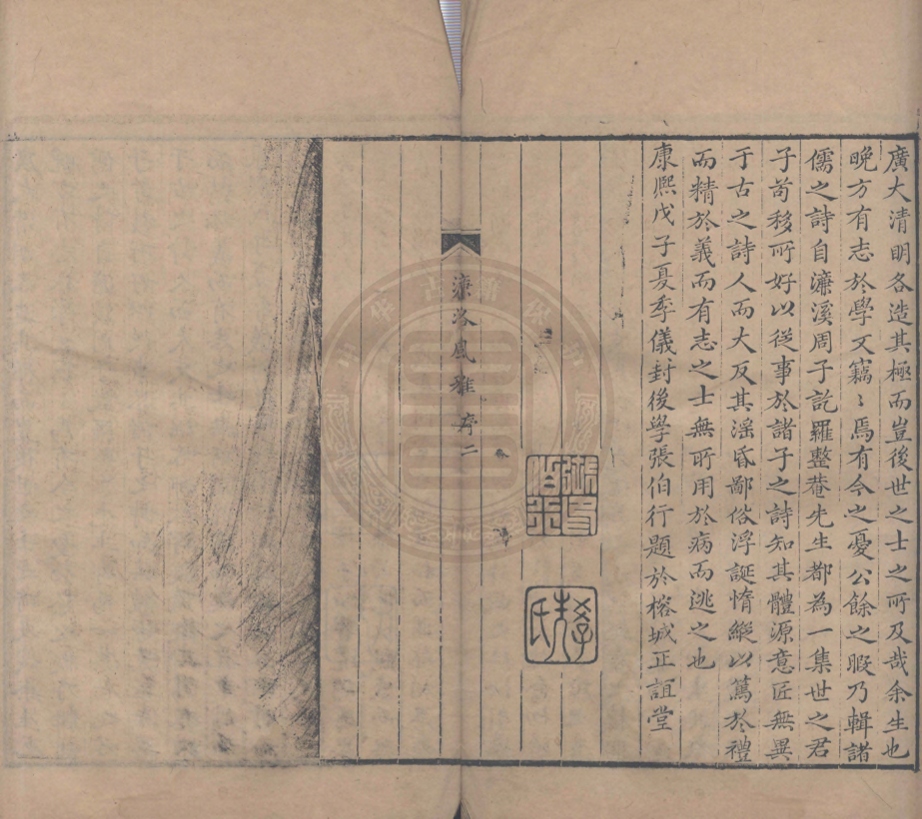 廣大清明各造其極而豈後世之士之所及哉余生也
晚方有志於學文竊〻焉有今之憂公餘之暇乃輯諸
儒之詩自濂溪周子訖羅整菴先生都為一集世之君
子苟移所好以從事於諸子之詩知其體源意匠無異
于古之詩人而大反其滛昏鄙俗浮誕惰縱以篤於禮
而精於義而有志之士無所用於病而逃之也
康熙戊子夏季儀封後學張伯行題於榕城正誼堂
濂洛風雅 序 二